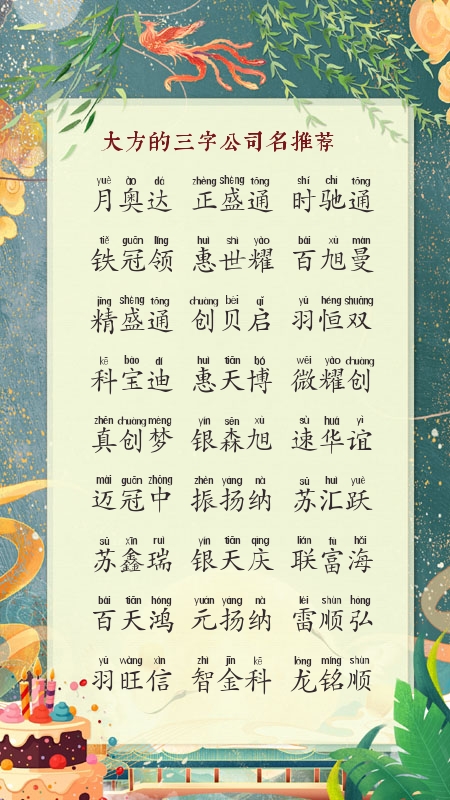 大方的三字公司名推荐
yuè ào dá zhèng shèng tōng shí chí tōng
月奥达 正盛通 时驰通
tiě guān lǐng huì shì yào bǎi xù màn
铁冠领 惠世耀 百旭曼
jīng shèng tōng chuàng bèi qǐ yǔ héng shuāng
精盛通 创贝启 羽恒双
kē bǎo dí huì tiān bó wēi yào chuàng
科宝迪 惠天博 微耀创
zhēn chuàng mèng yín sēn xù sù huá yì
真创梦 银森旭 速华谊
mài guān zhōng zhèn yáng nà sū huì yuè
迈冠中 振扬纳 苏汇跃
sū xīn ruì yín tiān qìng lián fù hǎi
苏鑫瑞 银天庆 联富海
bǎi tiān hóng yuán yáng nà léi shùn hóng
百天鸿 元扬纳 雷顺弘
yǔ wàng xìn zhì jīn kē lóng míng shùn
羽旺信 智金科 龙铭顺